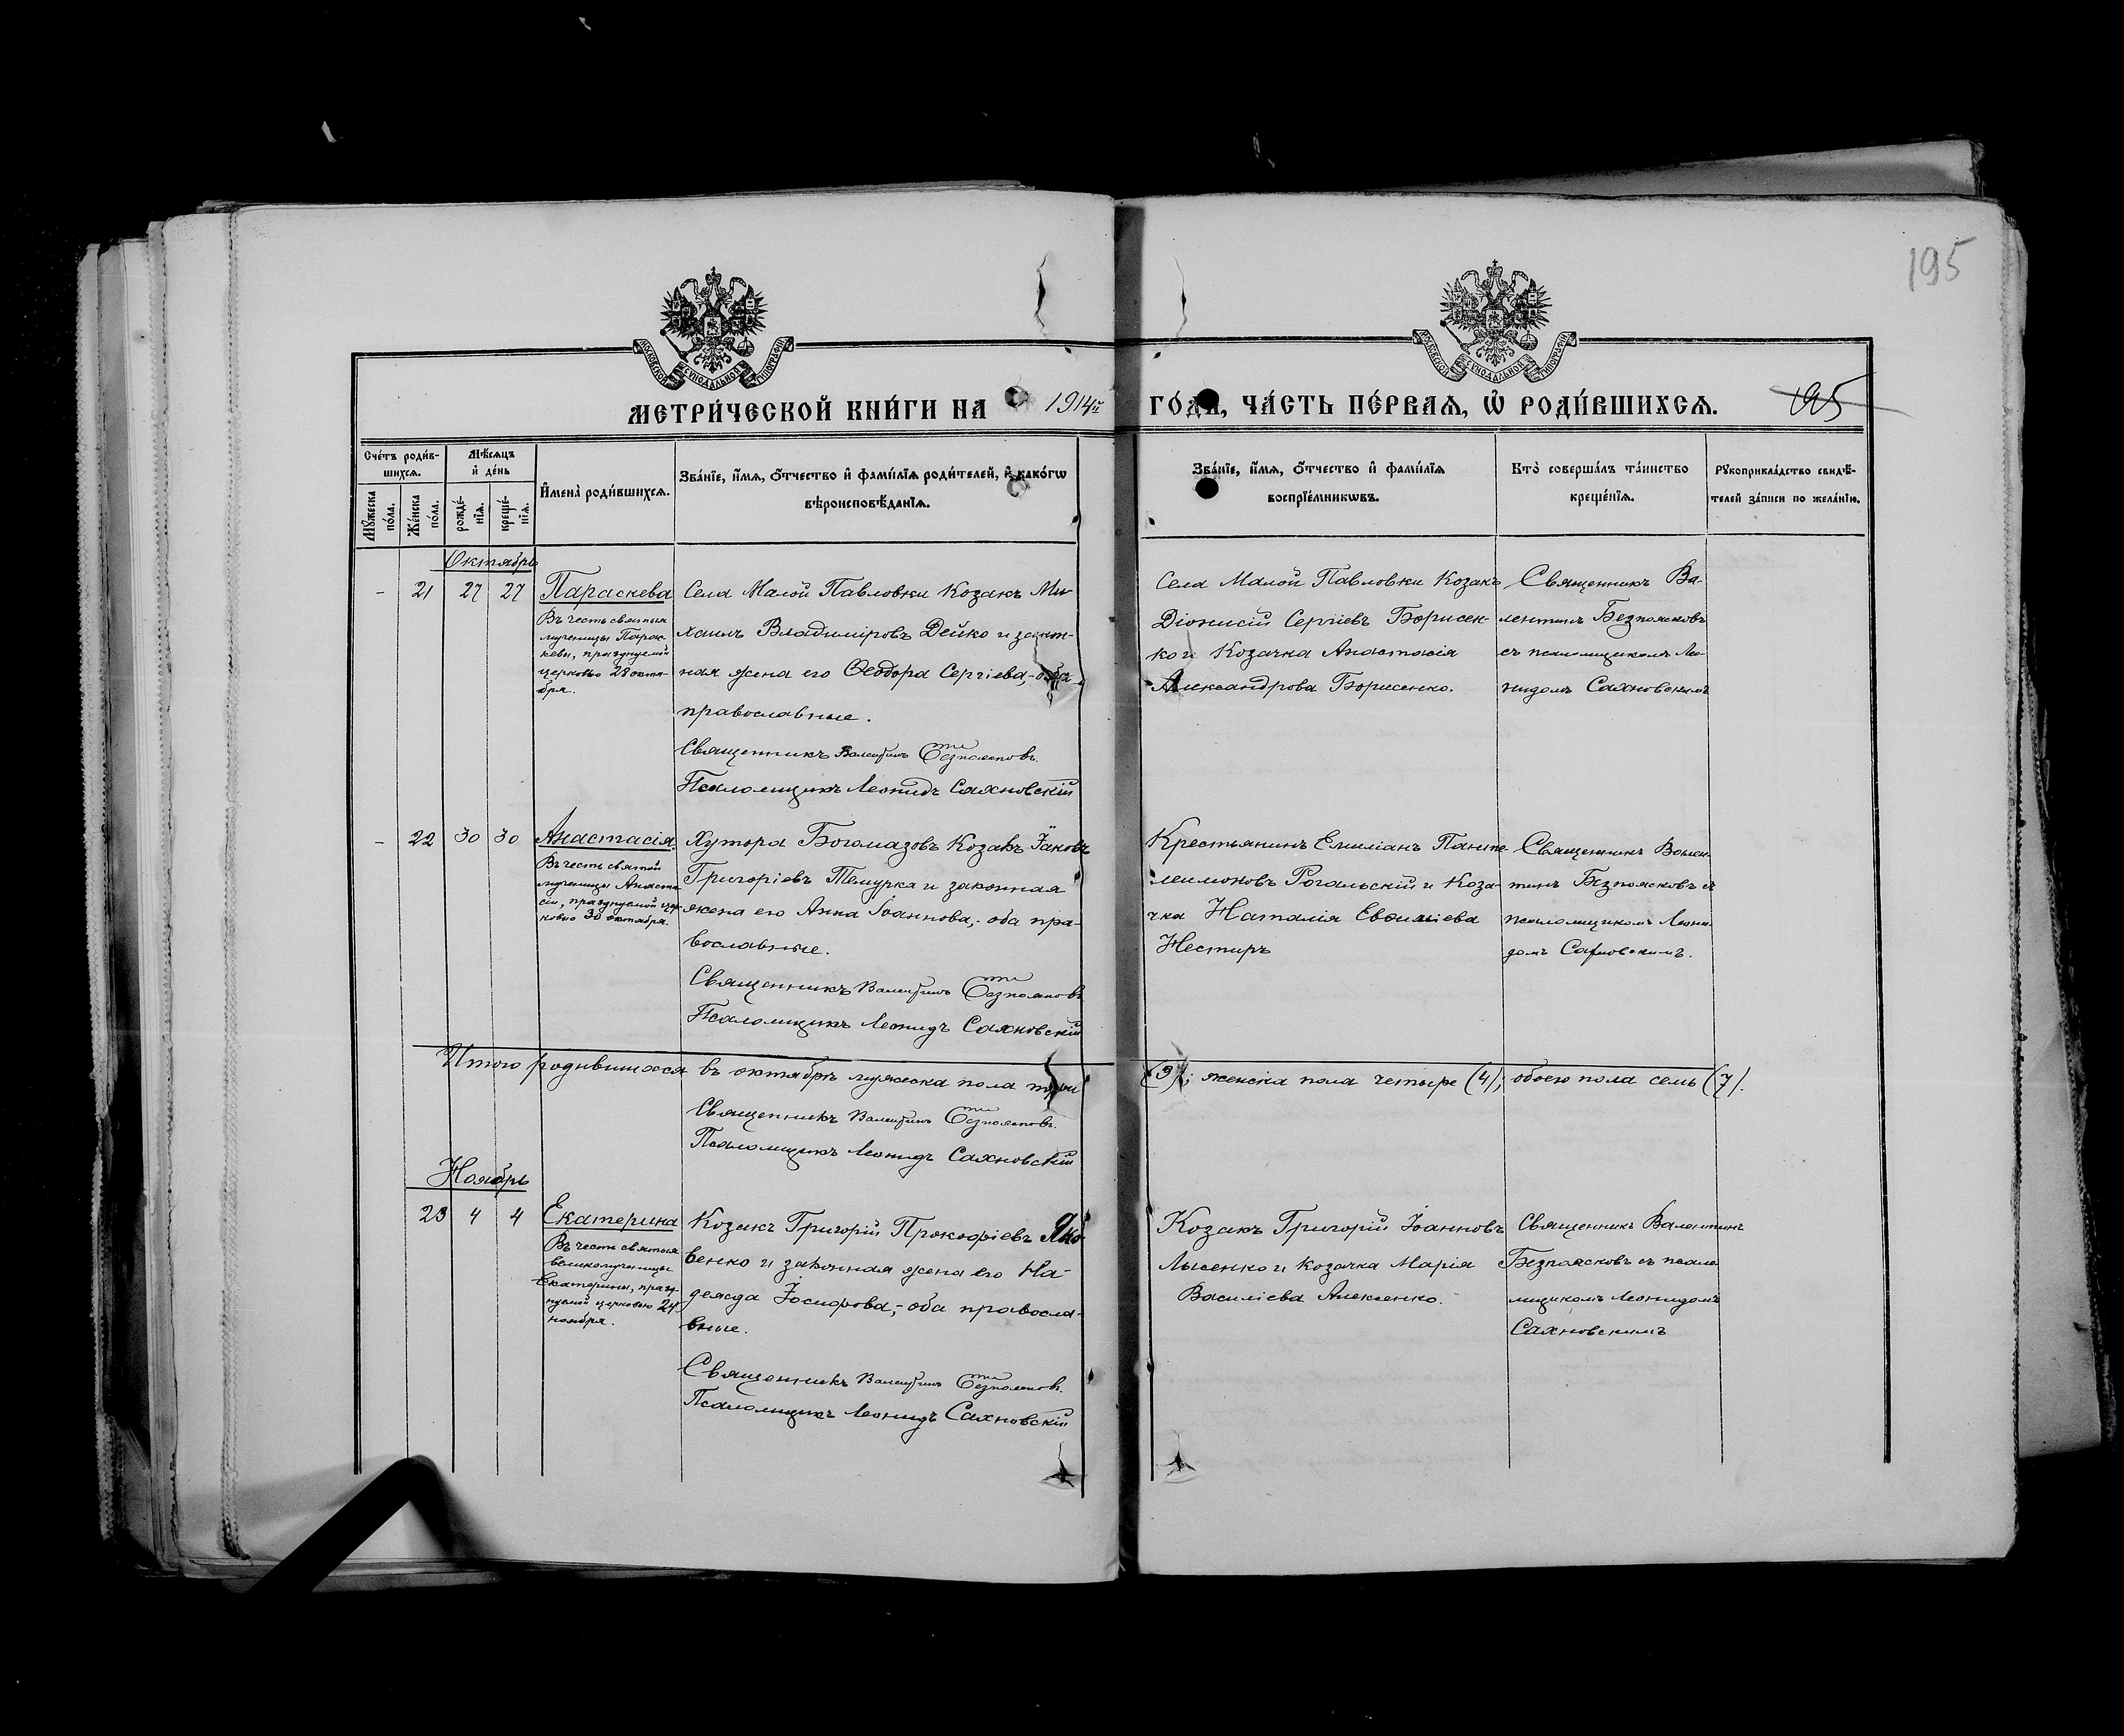 195
МОСКОВСКОЙ СУНОДАЛЬНОЙ ТИПОГРАФІИ
МОСКОВСКОЙ СУНОДАЛЬНОЙ ТИПОГРАФІИ
МЕТРИ́ЧЕСКОЙ КНИ́ГИ НА 1914й ГО́ДЪ, ЧА́СТЬ ПЕ́РВАѦ, Ѡ РОДИ́ВШИХСѦ.
195
Сче́тъ роди́в-
шихсѧ.
Мѣ́сѧцъ
и де́нь
Мꙋ́жеска
по́ла.
Же́нска
по́ла.
рожде́-
нїѧ.
креще́-
нїѧ.
Имена̀ роди́вшихсѧ.
Зва́нїе, и́мѧ, ѻ́тчество и фами́лїѧ роди́телей, и како́гѡ
вѣроисповѣ́данїѧ.
Зва́нїе, и́мѧ, ѻ́тчество и фами́лїѧ
воспрїе́мникѡвъ.
Кто̀ соверша́лъ та́инство
креще́нїѧ.
Рꙋкоприкла́дство свидѣ́-
телей за́писи по жела́нїю.
Октябрь
- 21 27 27 Параскева
Въ честь святыя
мученицы Парас-
кевы, празднуемой
церковью 28 октя-
бря.
Села Малой Павловки Козакъ Ми-
хаилъ Владиміровъ Дейко и закон-
ная жена его Ѳеодора Сергіева,- оба
православные.
Священникъ Валентинъ Безпоясковъ.
Псаломщикъ Леонидъ Сахновскій
Села Малой Павловки Козакъ
Діонисій Сергіевъ Борисен-
ко и Козачка Анастасія
Александрова Борисенко.
Священникъ Ва-
лентинъ Безпоясковъ
съ псаломщикомъ Лео-
нидомъ Сахновскимъ
- 22 30 30 Анастасія.
Въ честь святой
мученицы Анаста-
сіи, празднуемой цер-
ковью 30 октября.
Хутора Богомазовъ Козакъ Іаковъ
Григоріевъ Темурка и законная
жена его Анна Іоаннова,- оба пра-
вославные.
Священникъ Валентинъ Безпоясковъ
Псаломщикъ Леонидъ Сахновскій
Крестьянинъ Емиліанъ Панте-
леимоновъ Рогальскій и Коза-
чка Наталія Евѳиміева
Нестиръ
Священникъ Вален-
тинъ Безпоясковъ съ
псаломщикомъ Леони-
домъ Сахновскимъ.
Итого родившихся въ октябрѣ мужеска пола три (3); женска пола четыре (4); обоего пола семь (7).
Священникъ Валентинъ Безпоясковъ.
Псаломщикъ Леонидъ Сахновскій
Ноябрь
23 4 4 Екатерина
Въ честь святыя
великомученицы
Екатерины, празд-
нуемой церковью 24
ноября.
Козакъ Григорій Прокофіевъ Яко-
венко и законная жена его На-
дежда Іосифова,- оба правосла-
вные.
Священникъ Валентинъ Безпоясковъ.
Псаломщикъ Леонидъ Сахновскій
Козакъ Григорій Іоанновъ
Лысенко и Козачка Марія
Василіева Алексенко.
Священникъ Валентинъ
Безпоясковъ съ псало-
мщикомъ Леонидомъ
Сахновскимъ